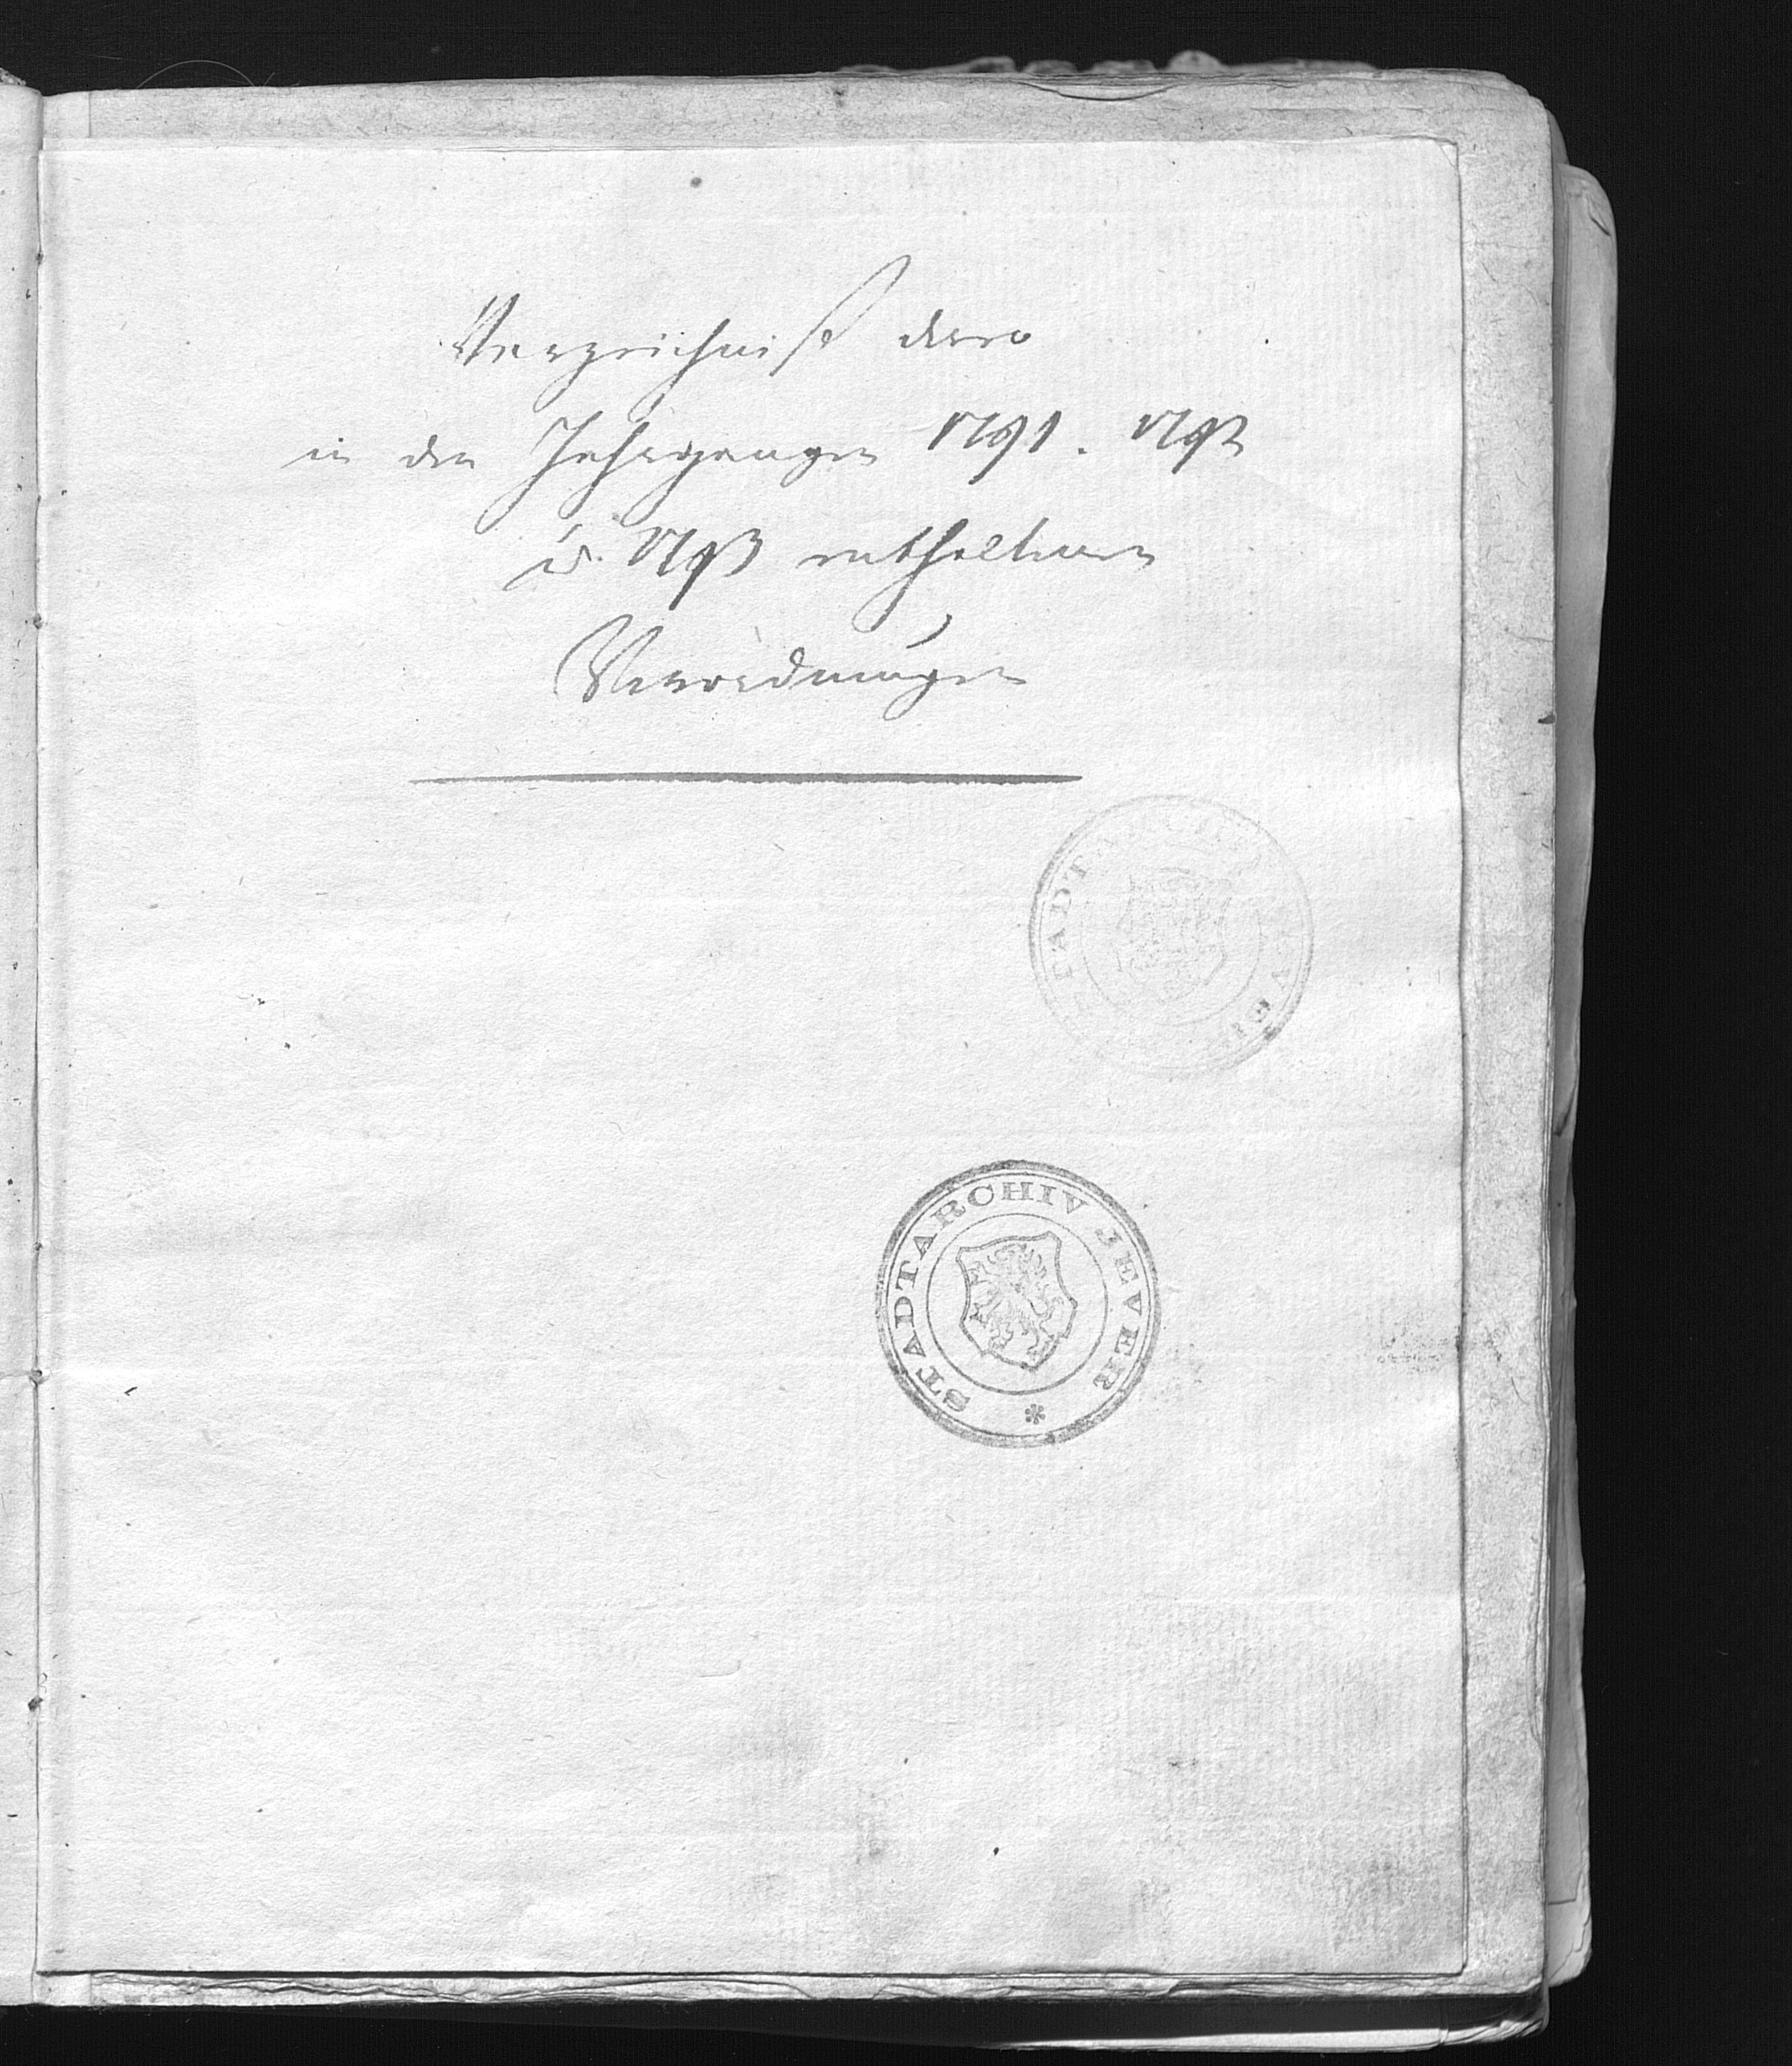 Verzeichniß derer
in den Jahrgangen 1791. 1792
u. 1793 enthaltenen
Verordnungen
STADTARCHIV JEVER
STADTARCHIV JEVER *